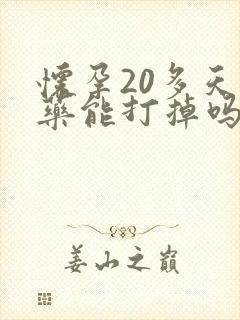 怀孕20多天
药能打掉吗
姜山之巅